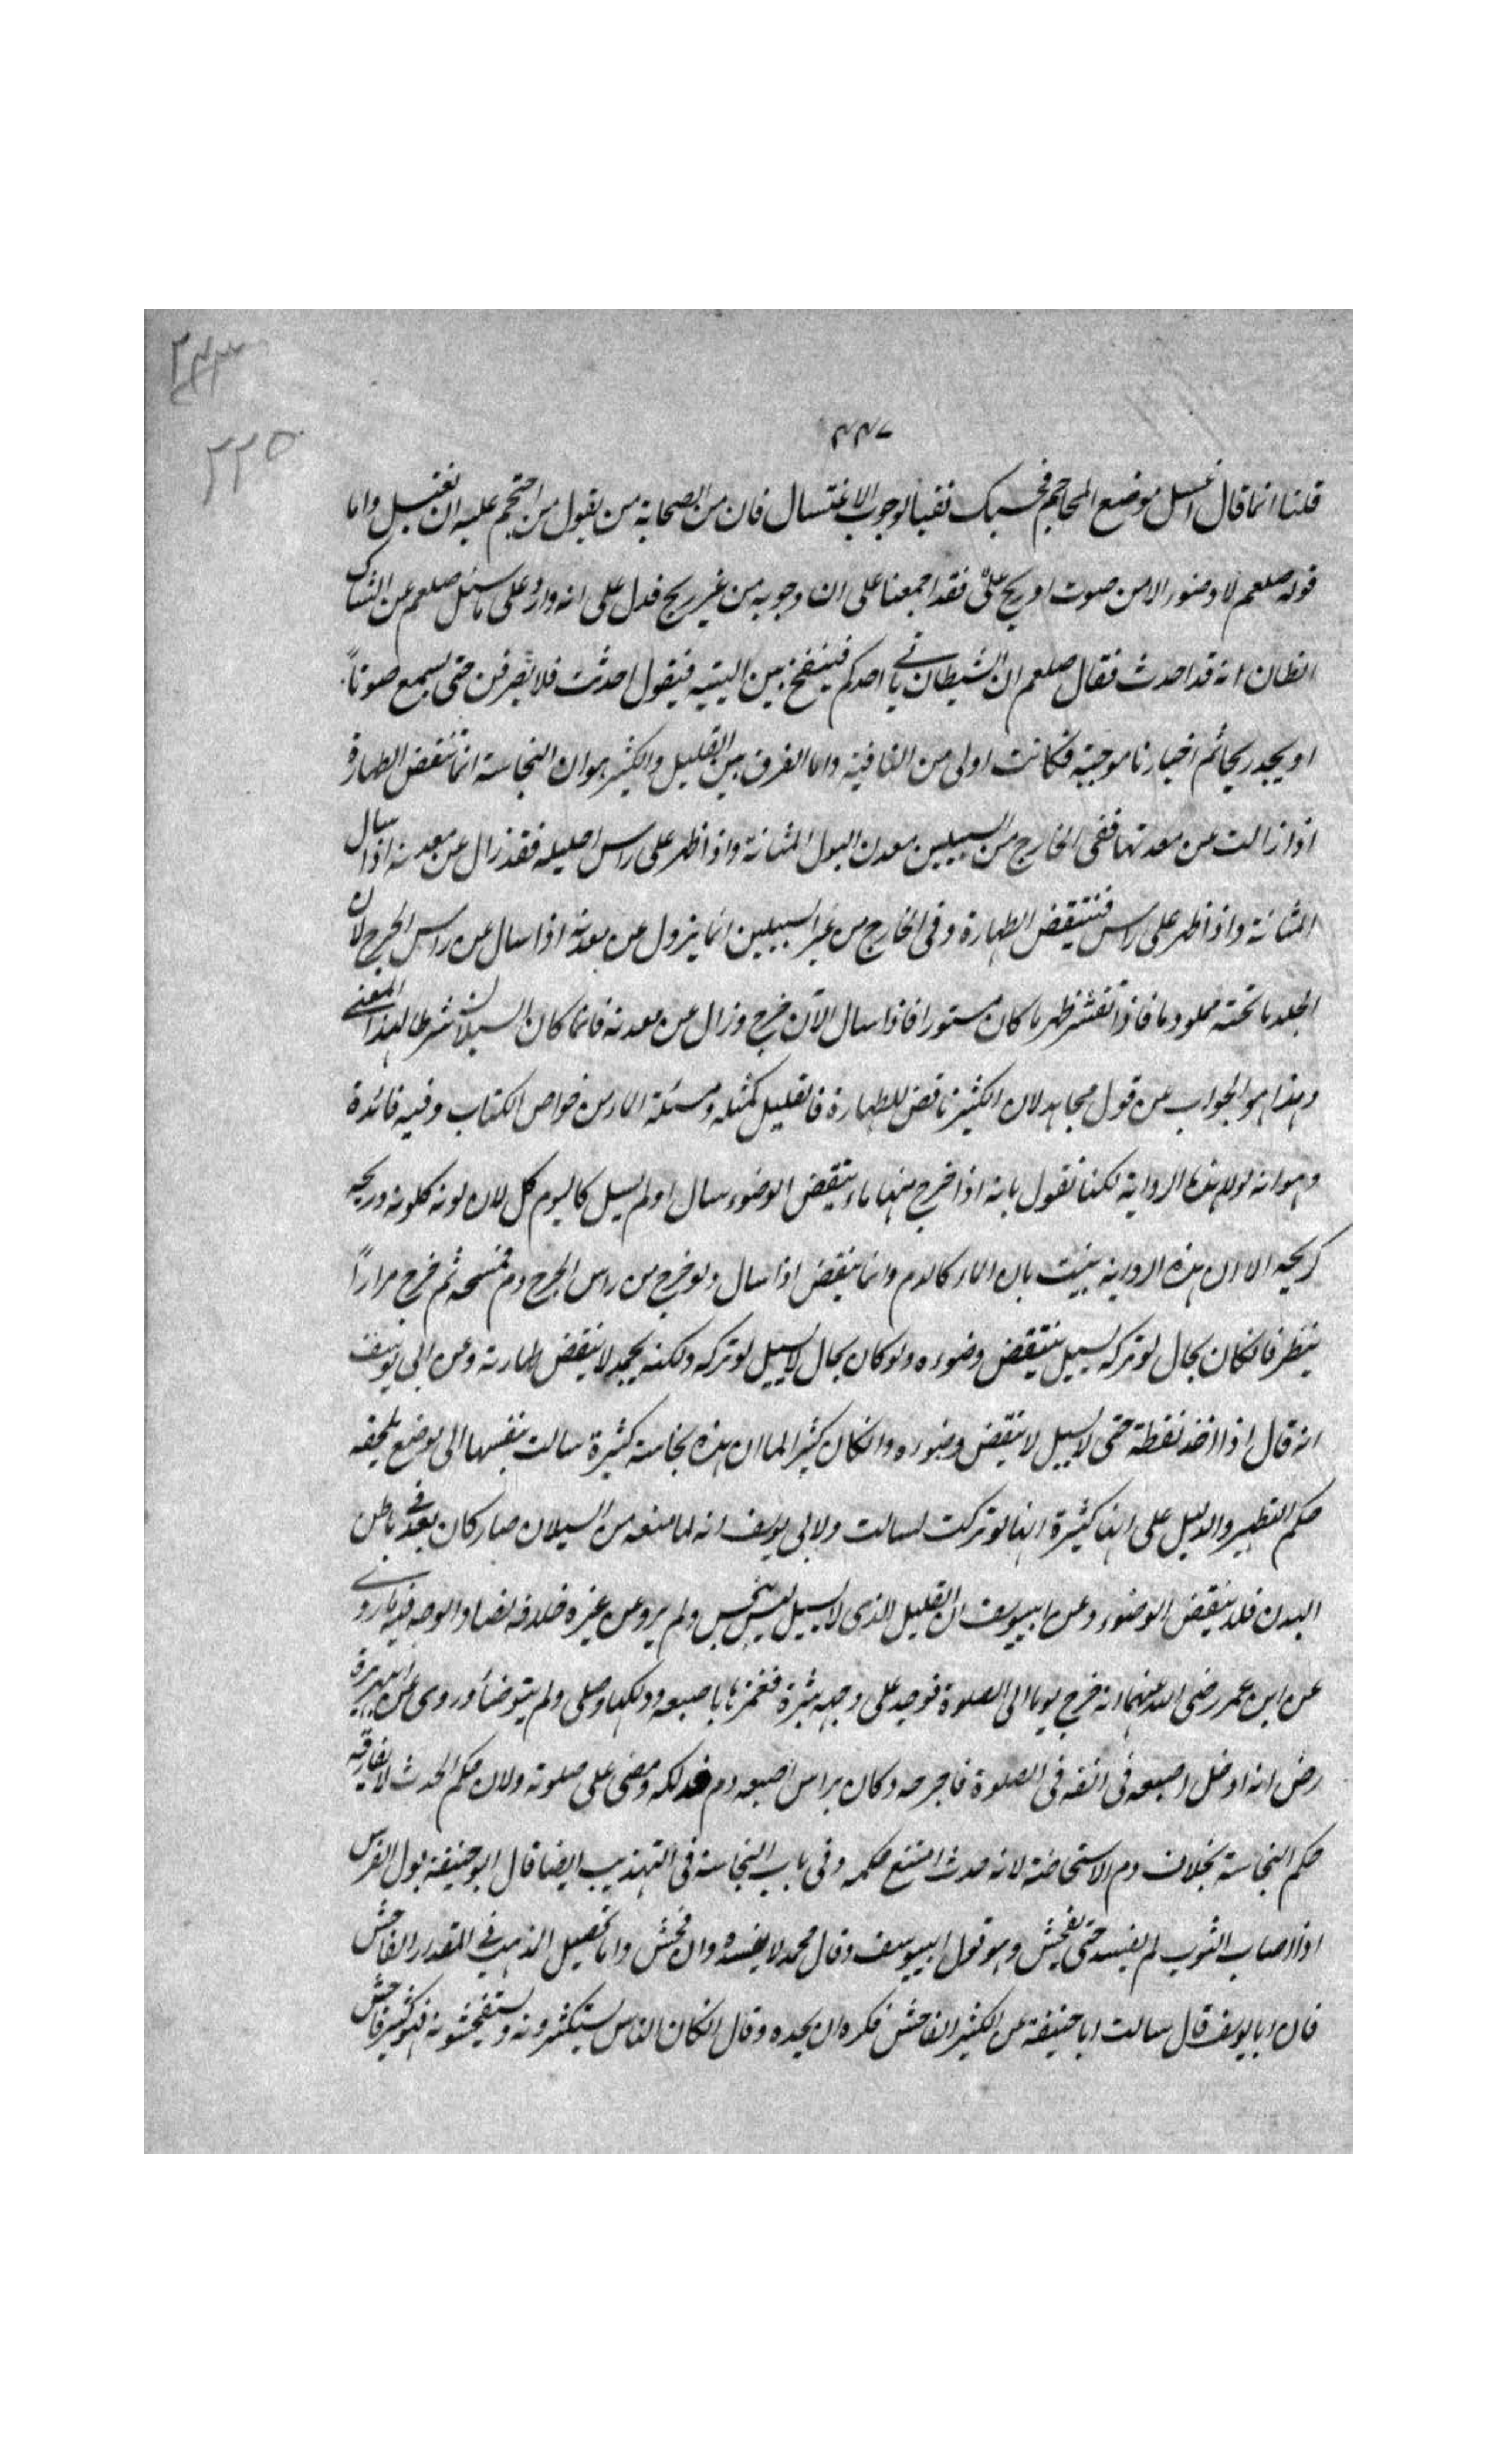 ۲۴۳
۲۲۵
۴۴۷
قلنا انما قال اغسل موضع المحاجم فحسبك نفيا لوجوب الاغتسال فان من الصحابة من يقول من احتجم عليه ان يغتسل واما
قوله صلعم لا وضوء الا من صوت او ريح فقد اجمعنا على ان وجوبه من غير ريح فدل على انه وارد على ما سئل صلعم عن الشاك
الظان انه قد احدث فقال صلعم ان الشيطان ياتي احدكم فينفخ بين اليتيه فيقول احدثت فلا ينصرفن حتى يسمع صوتاً
او يجد ريحا ثم اخبارنا موجبة فكانت اولى من النافية واما الفرق بين القليل والكثير هو ان النجاسة انما تنقض الطهارة
اذا زالت عن معدنها ففي الخارج من السبيلين معدن البول المثانة واذا ظهر على راس احليله فقد زال عن معدنه اذا سال
المثانة واذا ظهر على راس فتنتقض الطهارة وفي الخارج من غير السبيلين انما يزول عن معدنه اذا سال عن راس الجرح لان
الجلد ما تحته مملو دما فاذا تقشر ظهر ما كان مستورا فاذا سال الآن خرج وزال عن معدنه فانما كان السيلان شرطا لهذا المعنى
وهذا هو الجواب عن قول مجاهد لان الكثير ناقض للطهارة فالقليل كمثله ومسئلة الماء من خواص الكتاب وفيه فائدة
وهو انه لولا هذه الرواية لكنا نقول بانه اذا خرج منها ماء ينتقض الوضوء سال او لم يسل لان لونه كلونه وريحه
كريحه الا ان هذه الرواية بينت بان الماء كالدم وانما ينقض اذا سال ولو خرج من راس الجرح دم فمسحه ثم خرج مراراً
ينظر فان كان بحال لو تركه يسيل ينتقض وضوءه ولو كان بحال لا يسيل لو تركه ولكنه يجمد لا ينقض طهارته وعن ابي يوسف
انه قال اذا اخذ نقطة حتى لا يسيل لا ينقض وضوءه وان كان كثيرا لما ان هذه نجاسة كثيرة سالت بنفسها الى موضع يلحقه
حكم التطهير والدليل على انها كثيرة انها لو تركت لسالت ولابي يوسف انه لما منعه من السيلان صار كان بعد في باطن
البدن فلا ينقض الوضوء وعن ابيوسف ان القليل الذي لا يسيل ليس بنجس ولم يرو عن غيره خلافه نصا والوجه فيه ما روي
عن ابن عمر رضى الله عنهما انه خرج يوما الى الصلوة فوجد على وجهه بثرة فغمزها باصبعه ودلكها وصلى ولم يتوضأ وروى عن ابي هريرة
رض انه ادخل اصبعه في انفه في الصلوة فاجرحه وكان براس اصبعه دم فدلكه ومضى على صلوته ولان حكم الحدث لا يفارقه
حكم النجاسة بخلاف دم الاستحاضة لانه حدث امتنع حكمه وفي باب النجاسة في التهذيب ايضا قال ابو حنيفة بول الفرس
اذا اصاب الثوب لم يفسد حتى يفحش وهو قول ابيوسف وقال محمد لا يفسده وان فحش واما تفصيل المذهب في المقدر الفاحش
فان ابا يوسف قال سالت ابا حنيفة عن الكثير الفاحش فكره ان يحده وقال ان كان الناس يستكثرونه ويستفحشونه فهو كثير فاحش